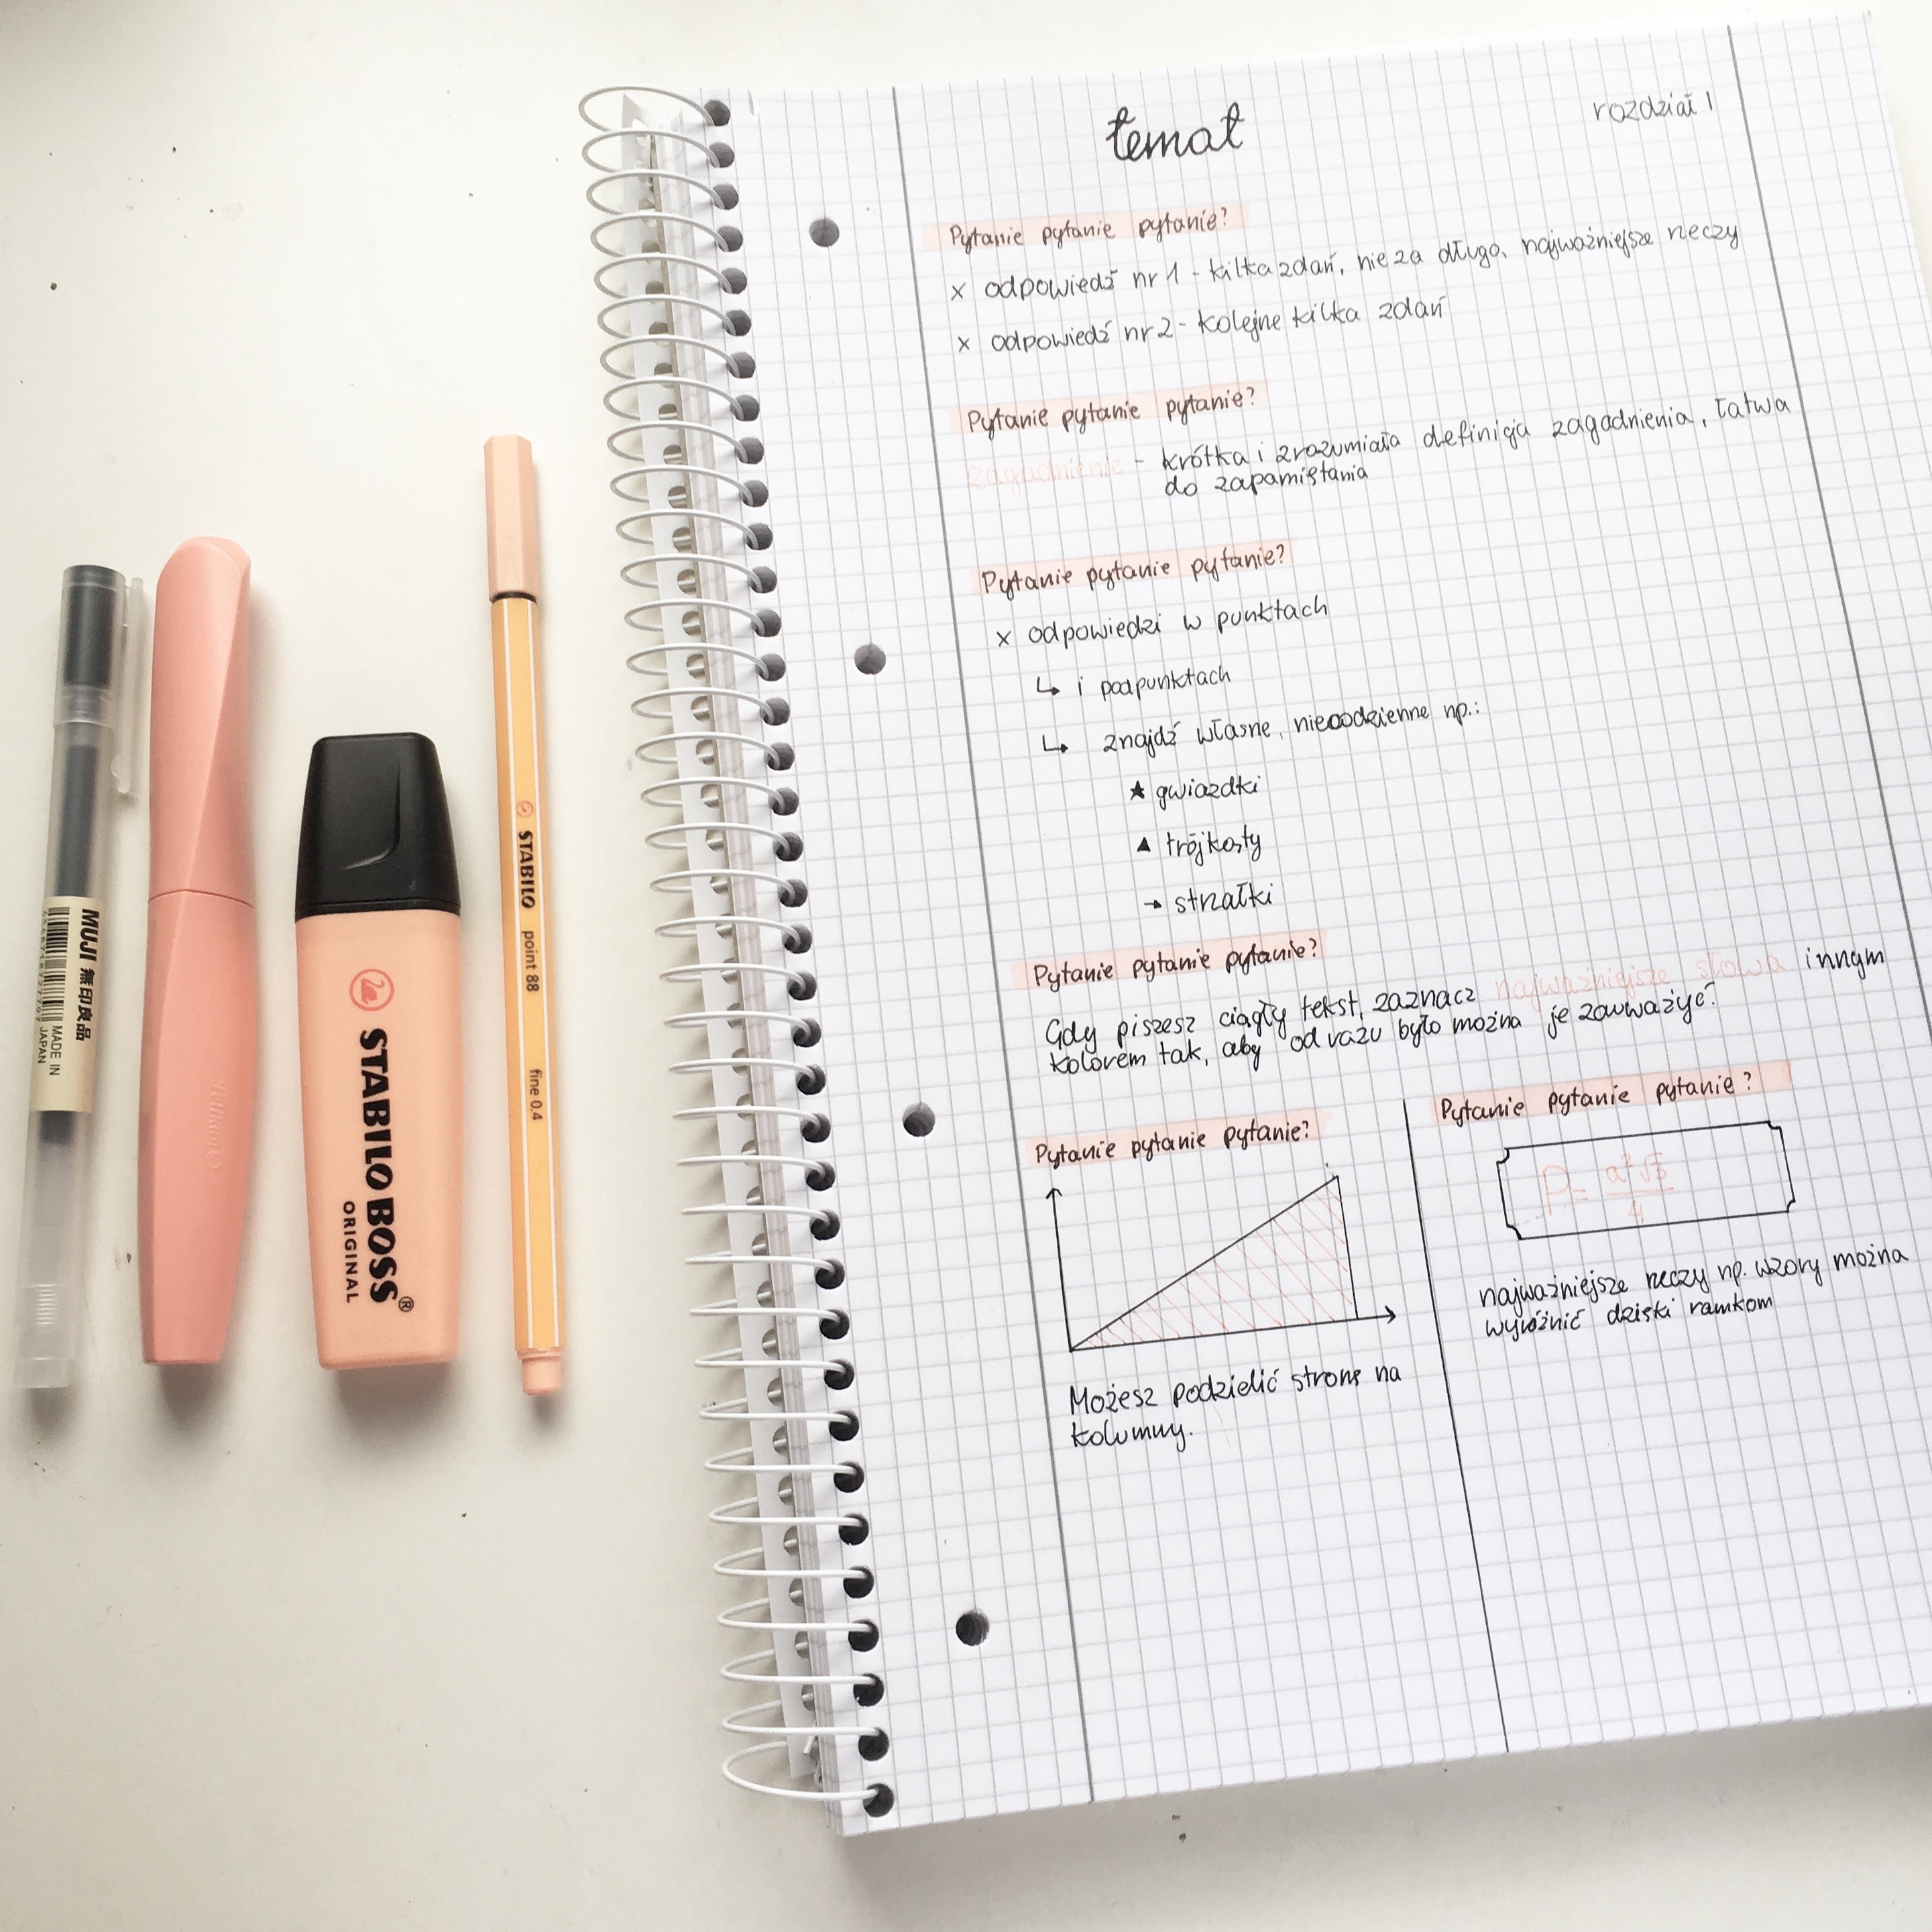 temat
rozdział 1
Pytanie pytanie pytanie?
x odpowiedź nr 1 - kilka zdań, nie za długo, najważniejsze rzeczy
x odpowiedź nr 2 - kolejne kilka zdań
Pytanie pytanie pytanie?
zagadnienie - krótka i zrozumiała definicja zagadnienia, łatwa
do zapamiętania
Pytanie pytanie pytanie?
x odpowiedzi w punktach
↳ i podpunktach
↳ znajdź własne, niecodzienne np.:
★ gwiazdki
▲ trójkąty
→ strzałki
Pytanie pytanie pytanie?
Gdy piszesz ciągły tekst, zaznacz najważniejsze słowa innym
kolorem tak, aby od razu było można je zauważyć.
Pytanie pytanie pytanie?
Możesz podzielić stronę na
kolumny.
Pytanie pytanie pytanie?
P = a²√3 / 4
najważniejsze rzeczy np. wzory można
wyróżnić dzięki ramkom
MUJI 無印良品
MADE IN
JAPAN
Pelikan
STABILO BOSS®
ORIGINAL
STABILO point 88 fine 0.4